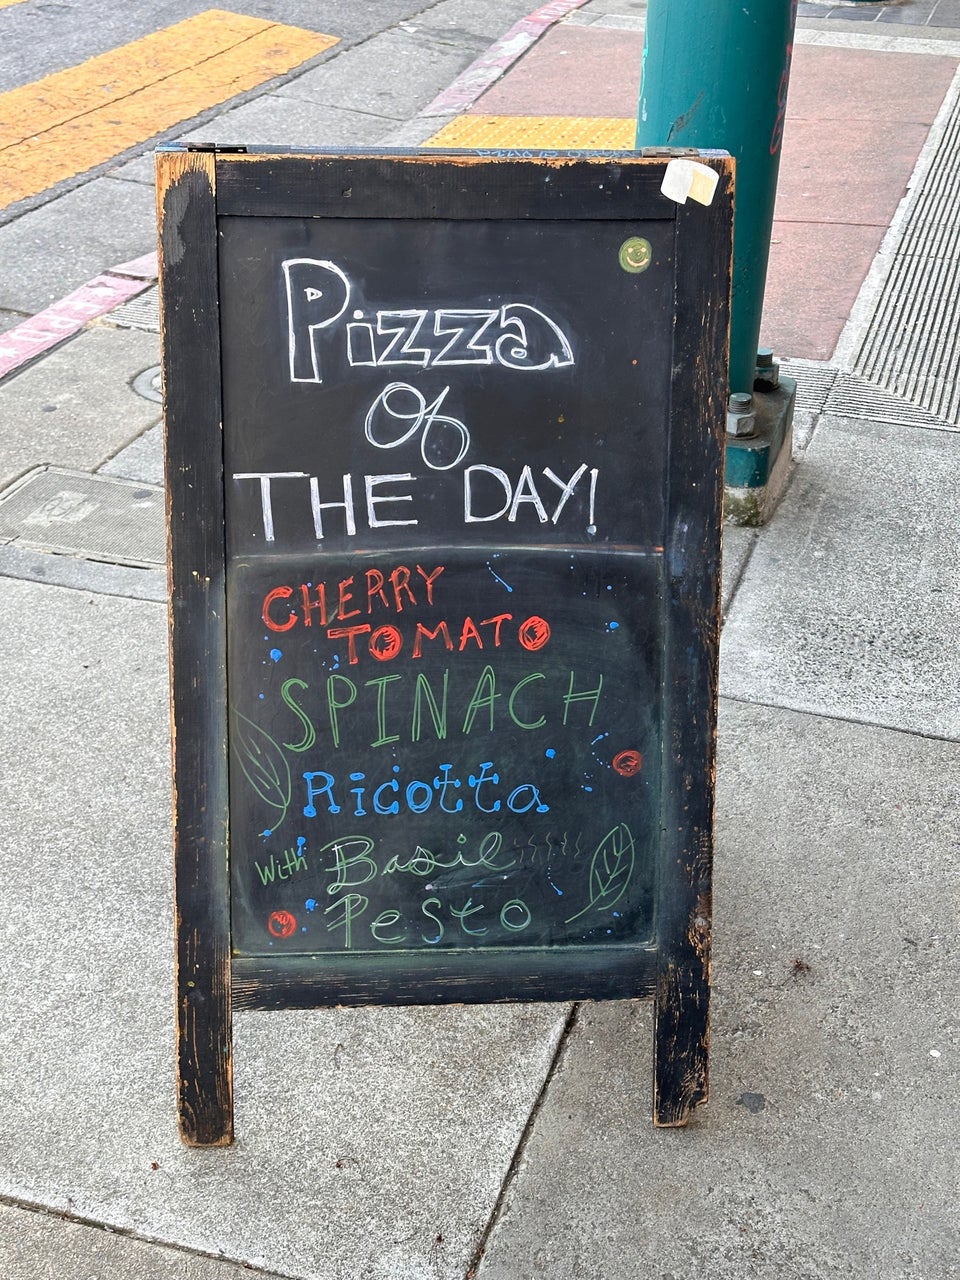 Pizza
Of
THE DAY!
CHERRY
TOMATO
SPINACH
Ricotta
With Basil
Pesto